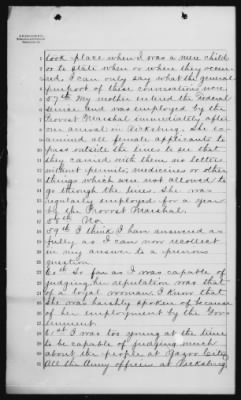 took place when I was a mere child
or to state when or where they occur-
ed. I can only say what the general
purport of these conversations were.
57th My mother entered the Federal
service and was employed by the
Provost Marshal immediately after
our arrival in Vicksburg. She ex-
amined all female applicants to
pass outside the lines to see that
they carried with them no letter
without permits, medicines or other
things which are not allowed to
go through the lines. She was
regularly employed for a year
by the Provost Marshal.
58th No.
59th I think I have answered as
fully as I can now recollect
in my answer to a previous
question.
60th So far as I was capable of
judging her reputation was that
of a loyal woman. I know that
she was harshly spoken of because
of her employment by the Gov-
ernment.
61st I was too young at the time
to be capable of judging much
about the people at Yazoo City.
All the Army officers at Vicksburg